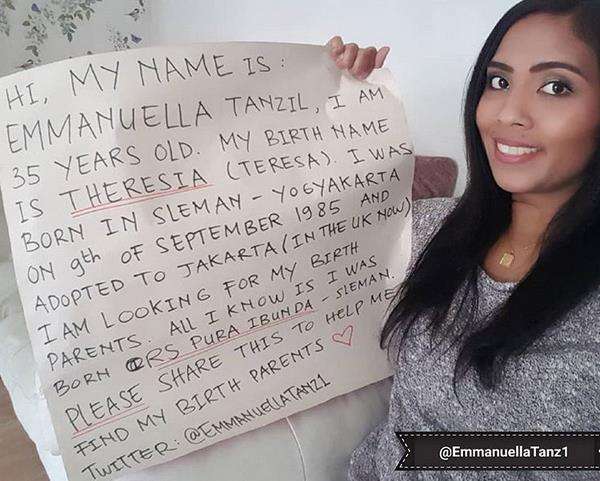 HI, MY NAME IS:
EMMANUELLA TANZIL, I AM
35 YEARS OLD. MY BIRTH NAME
IS THERESIA (TERESA). I WAS
BORN IN SLEMAN - YOGYAKARTA
ON 9th OF SEPTEMBER 1985 AND
ADOPTED TO JAKARTA (IN THE UK NOW)
I AM LOOKING FOR MY BIRTH
PARENTS. ALL I KNOW IS I WAS
BORN @RS PURA IBUNDA - SLEMAN.
PLEASE SHARE THIS TO HELP ME
FIND MY BIRTH PARENTS ♡
TWITTER: @EMMANUELLATANZ1
@EmmanuellaTanz1